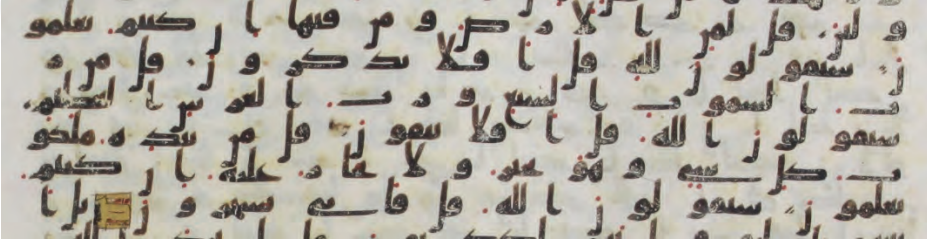 ولين قل لمن الارض و من فيها ان كنتم تعلمو
ن سيقولون لله قل افلا تذكرون قل من ر
ب السموت السبع و رب العرش العظيم
سيقولون الله قل افلا تتقون قل من بيده ملكو
ت كل شيء و هو يجير و لا يجار عليه ان كنتم
تعلمون سيقولون الله قل فانى تسحرون بل ا